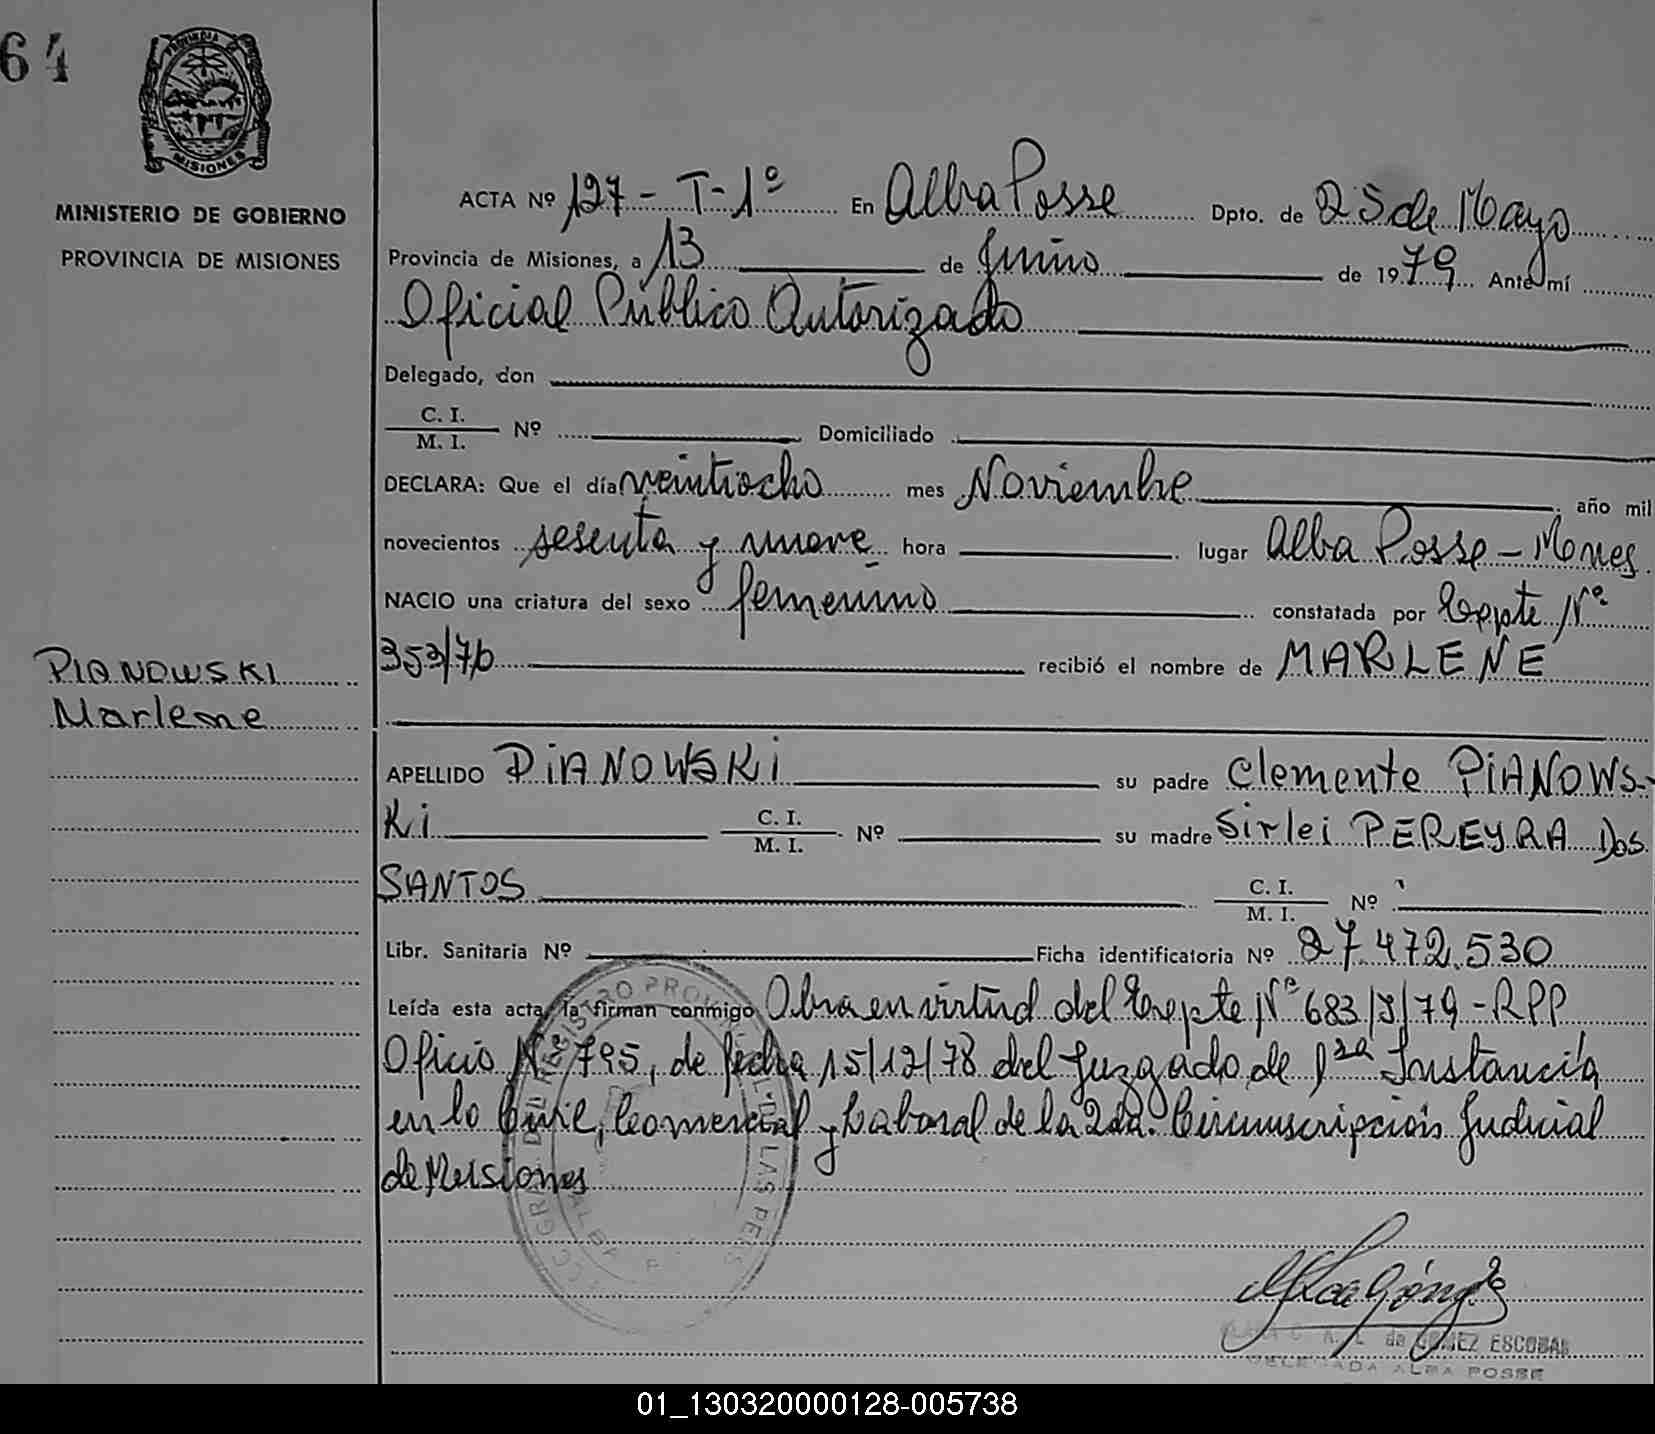 64
PROVINCIA DE
MISIONES
MINISTERIO DE GOBIERNO
PROVINCIA DE MISIONES
PIANOWSKI
Marlene
ACTA Nº 127 - T-1º En Alba Posse Dpto. de 25 de Mayo
Provincia de Misiones, a 13 de Junio de 1979 Ante mí
Oficial Público Autorizado
Delegado, don
C. I.
M. I. Nº Domiciliado
DECLARA: Que el día veintiocho mes Noviembre año mil
novecientos sesenta y nueve hora lugar Alba Posse - Mnes
NACIO una criatura del sexo femenino constatada por Expte Nº
353/76 recibió el nombre de MARLENE
APELLIDO PIANOWSKI su padre Clemente PIANOWS-
Ki C. I. M. I. Nº su madre Sirlei PEREYRA Dos
SANTOS C. I. M. I. Nº
Libr. Sanitaria Nº Ficha identificatoria Nº 27.472.530
Leída esta acta la firman conmigo Obra en virtud del Expte Nº 683/J/79 - RPP
Oficio Nº 795, de fecha 15/12/78 del Juzgado de 1ra Instancia
en lo Civil, Comercial y Laboral de la 2da. Circunscripción Judicial
de Misiones
REGISTRO DE LAS PERS
de GOMEZ ESCOBAR
DELEGADA ALBA POSSE
01_130320000128-005738